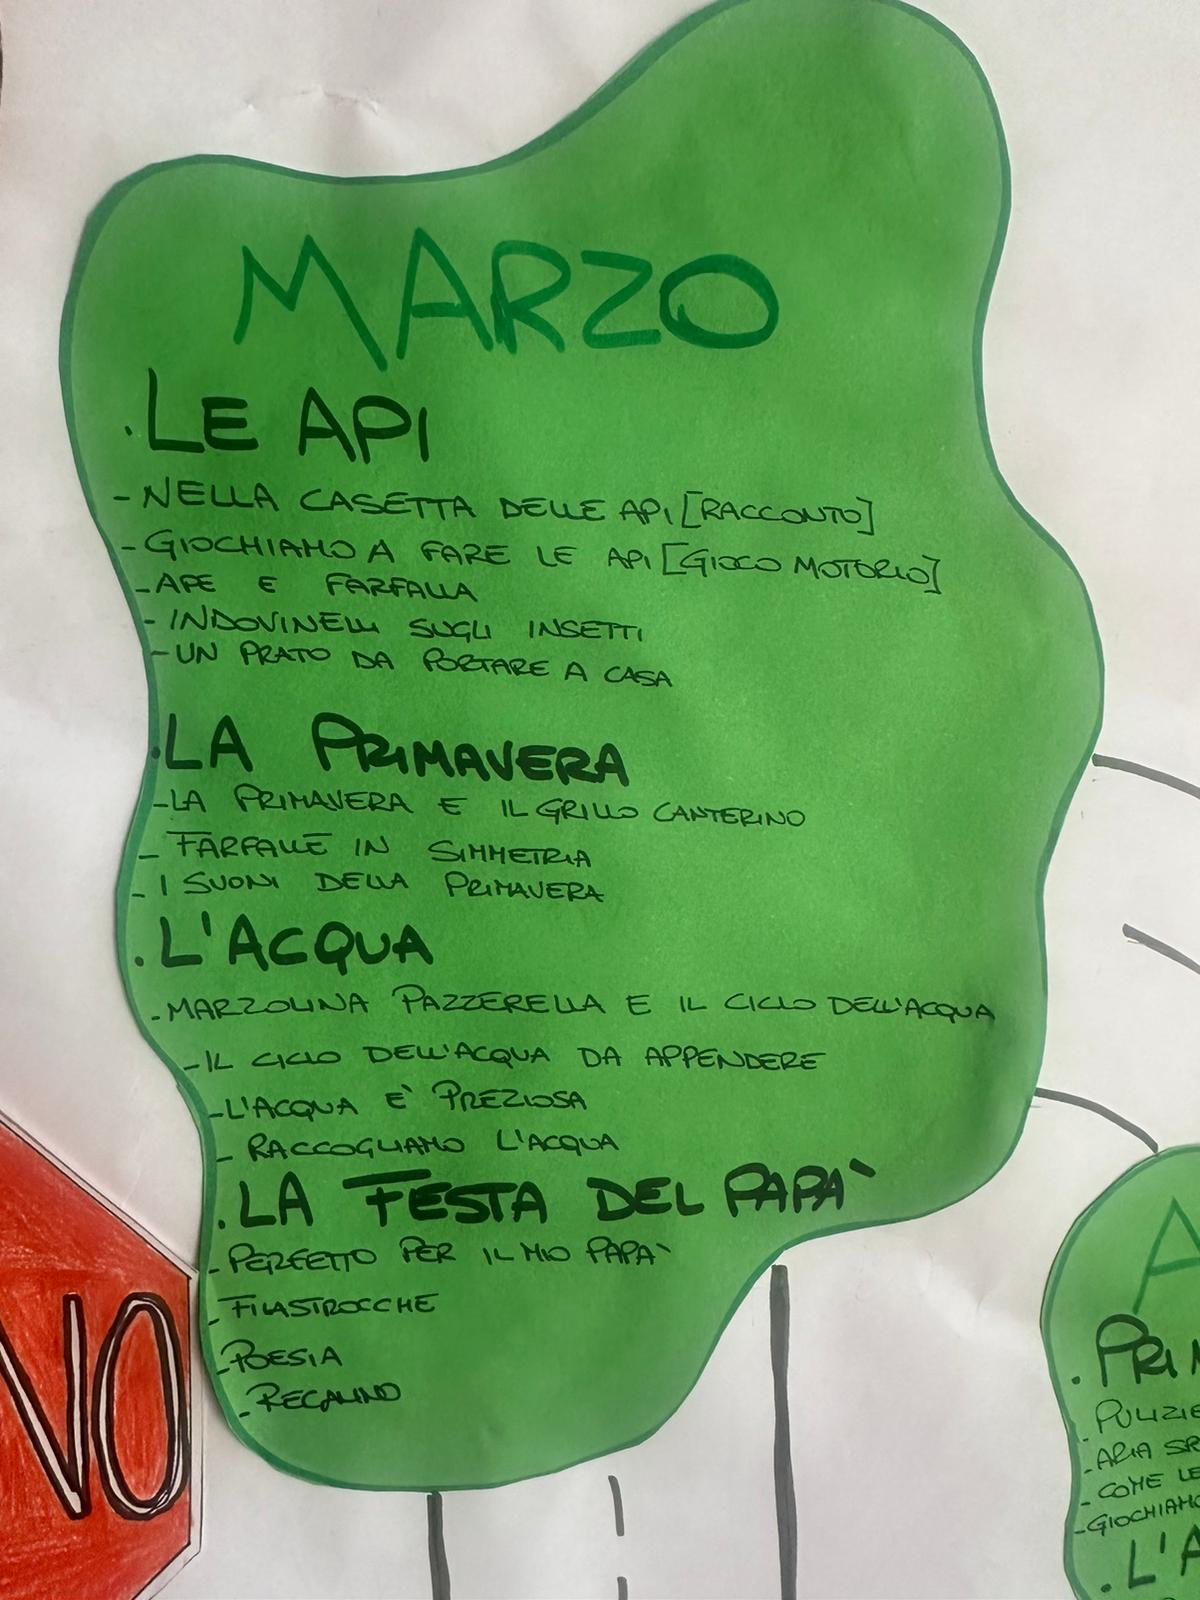 MARZO
. LE API
- NELLA CASETTA DELLE API [RACCONTO]
- GIOCHIAMO A FARE LE API [GIOCO MOTORIO]
- APE E FARFALLA
- INDOVINELLI SUGLI INSETTI
- UN PRATO DA PORTARE A CASA
. LA PRIMAVERA
- LA PRIMAVERA E IL GRILLO CANTERINO
- FARFALLE IN SIMMETRIA
- I SUONI DELLA PRIMAVERA
. L'ACQUA
- MARZOLINA PAZZERELLA E IL CICLO DELL'ACQUA
- IL CICLO DELL'ACQUA DA APPENDERE
- L'ACQUA E' PREZIOSA
- RACCOGLIAMO L'ACQUA
. LA FESTA DEL PAPA'
- PERFETTO PER IL MIO PAPA'
- FILASTROCCHE
- POESIA
- REGALINO
VO
A
. PRIM
- PULIZIE
- ARIA SPR
- COME LE
- GIOCHIAMO
. L'A